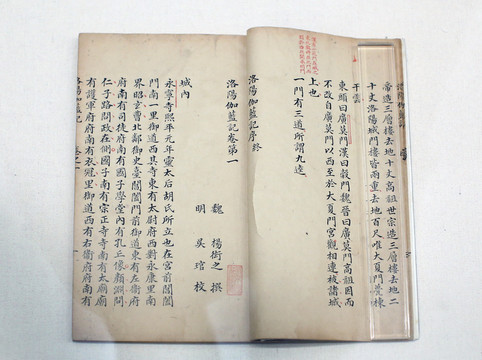 帝造三層樓去地十丈高祖世宗造三層樓去地二
十丈洛陽城門樓皆兩重去地百尺唯大夏門甍棟
干雲
東頭曰廣莫門漢曰穀門魏晉曰廣莫門高祖因而
不改自廣莫門以西至於大夏門宮觀相連被諸城
上也
一門有三道所謂九逵
洛陽伽藍記序終
洛陽伽藍記卷第一
魏 楊衒之 撰
明 吳琯 校
城內
永寧寺熙平元年靈太后胡氏所立也在宮前閶闔
門南一里御道西其寺東有太尉府西對永康里南
界昭玄曹北鄰御史臺閶闔門前御道東有左衛府
府南有司徒府府南有國子學堂內有孔丘像顏淵問
仁子路問政在側國子南有宗正寺寺南有太廟廟
有護軍府府南有衣冠里御道西有右衛府府南有
洛陽伽藍記